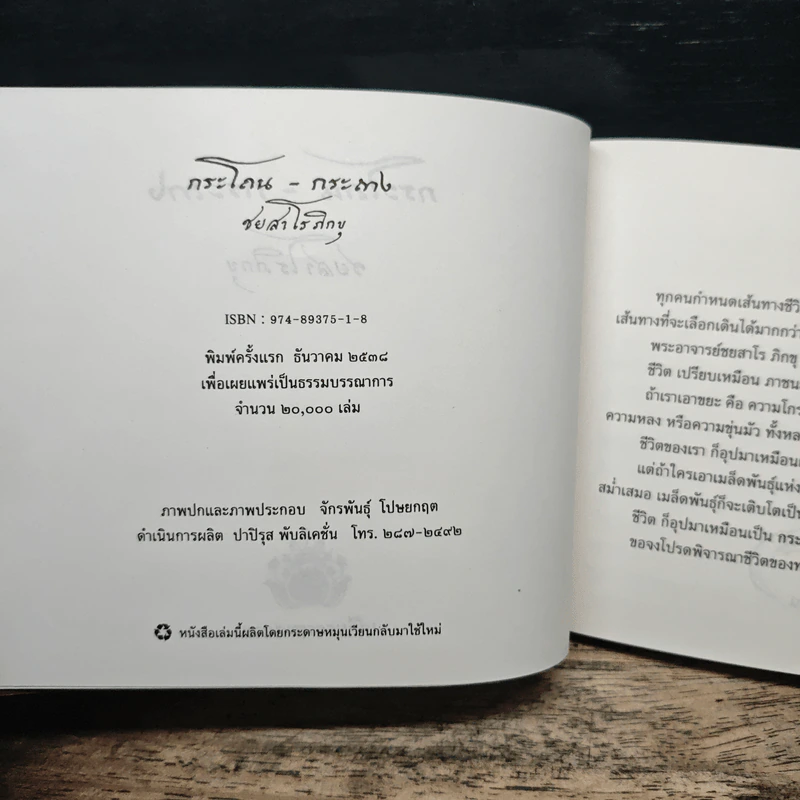 กระโถน - กระถาง
ชยสาโร ภิกขุ
ISBN : 974-89375-1-8
พิมพ์ครั้งแรก ธันวาคม ๒๕๓๘
เพื่อเผยแพร่เป็นธรรมบรรณาการ
จำนวน ๒๐,๐๐๐ เล่ม
ภาพปกและภาพประกอบ จักรพันธุ์ โปษยกฤต
ดำเนินการผลิต ปาปิรุส พับลิเคชั่น โทร. ๒๘๗-๒๔๙๒
หนังสือเล่มนี้ผลิตโดยกระดาษหมุนเวียนกลับมาใช้ใหม่
ทุกคนกำหนดเส้นทางชีวิ
เส้นทางที่จะเลือกเดินได้มากกว่า
พระอาจารย์ชยสาโร ภิกขุ
ชีวิต เปรียบเหมือน ภาชน
ถ้าเราเอาขยะ คือ ความโกร
ความหลง หรือความขุ่นมัว ทั้งหล
ชีวิตของเรา ก็อุปมาเหมือน
แต่ถ้าใครเอาเมล็ดพันธุ์แห่ง
สม่ำเสมอ เมล็ดพันธุ์ก็จะเติบโตเป็น
ชีวิต ก็อุปมาเหมือนเป็น กระ
ขอจงโปรดพิจารณาชีวิตของท